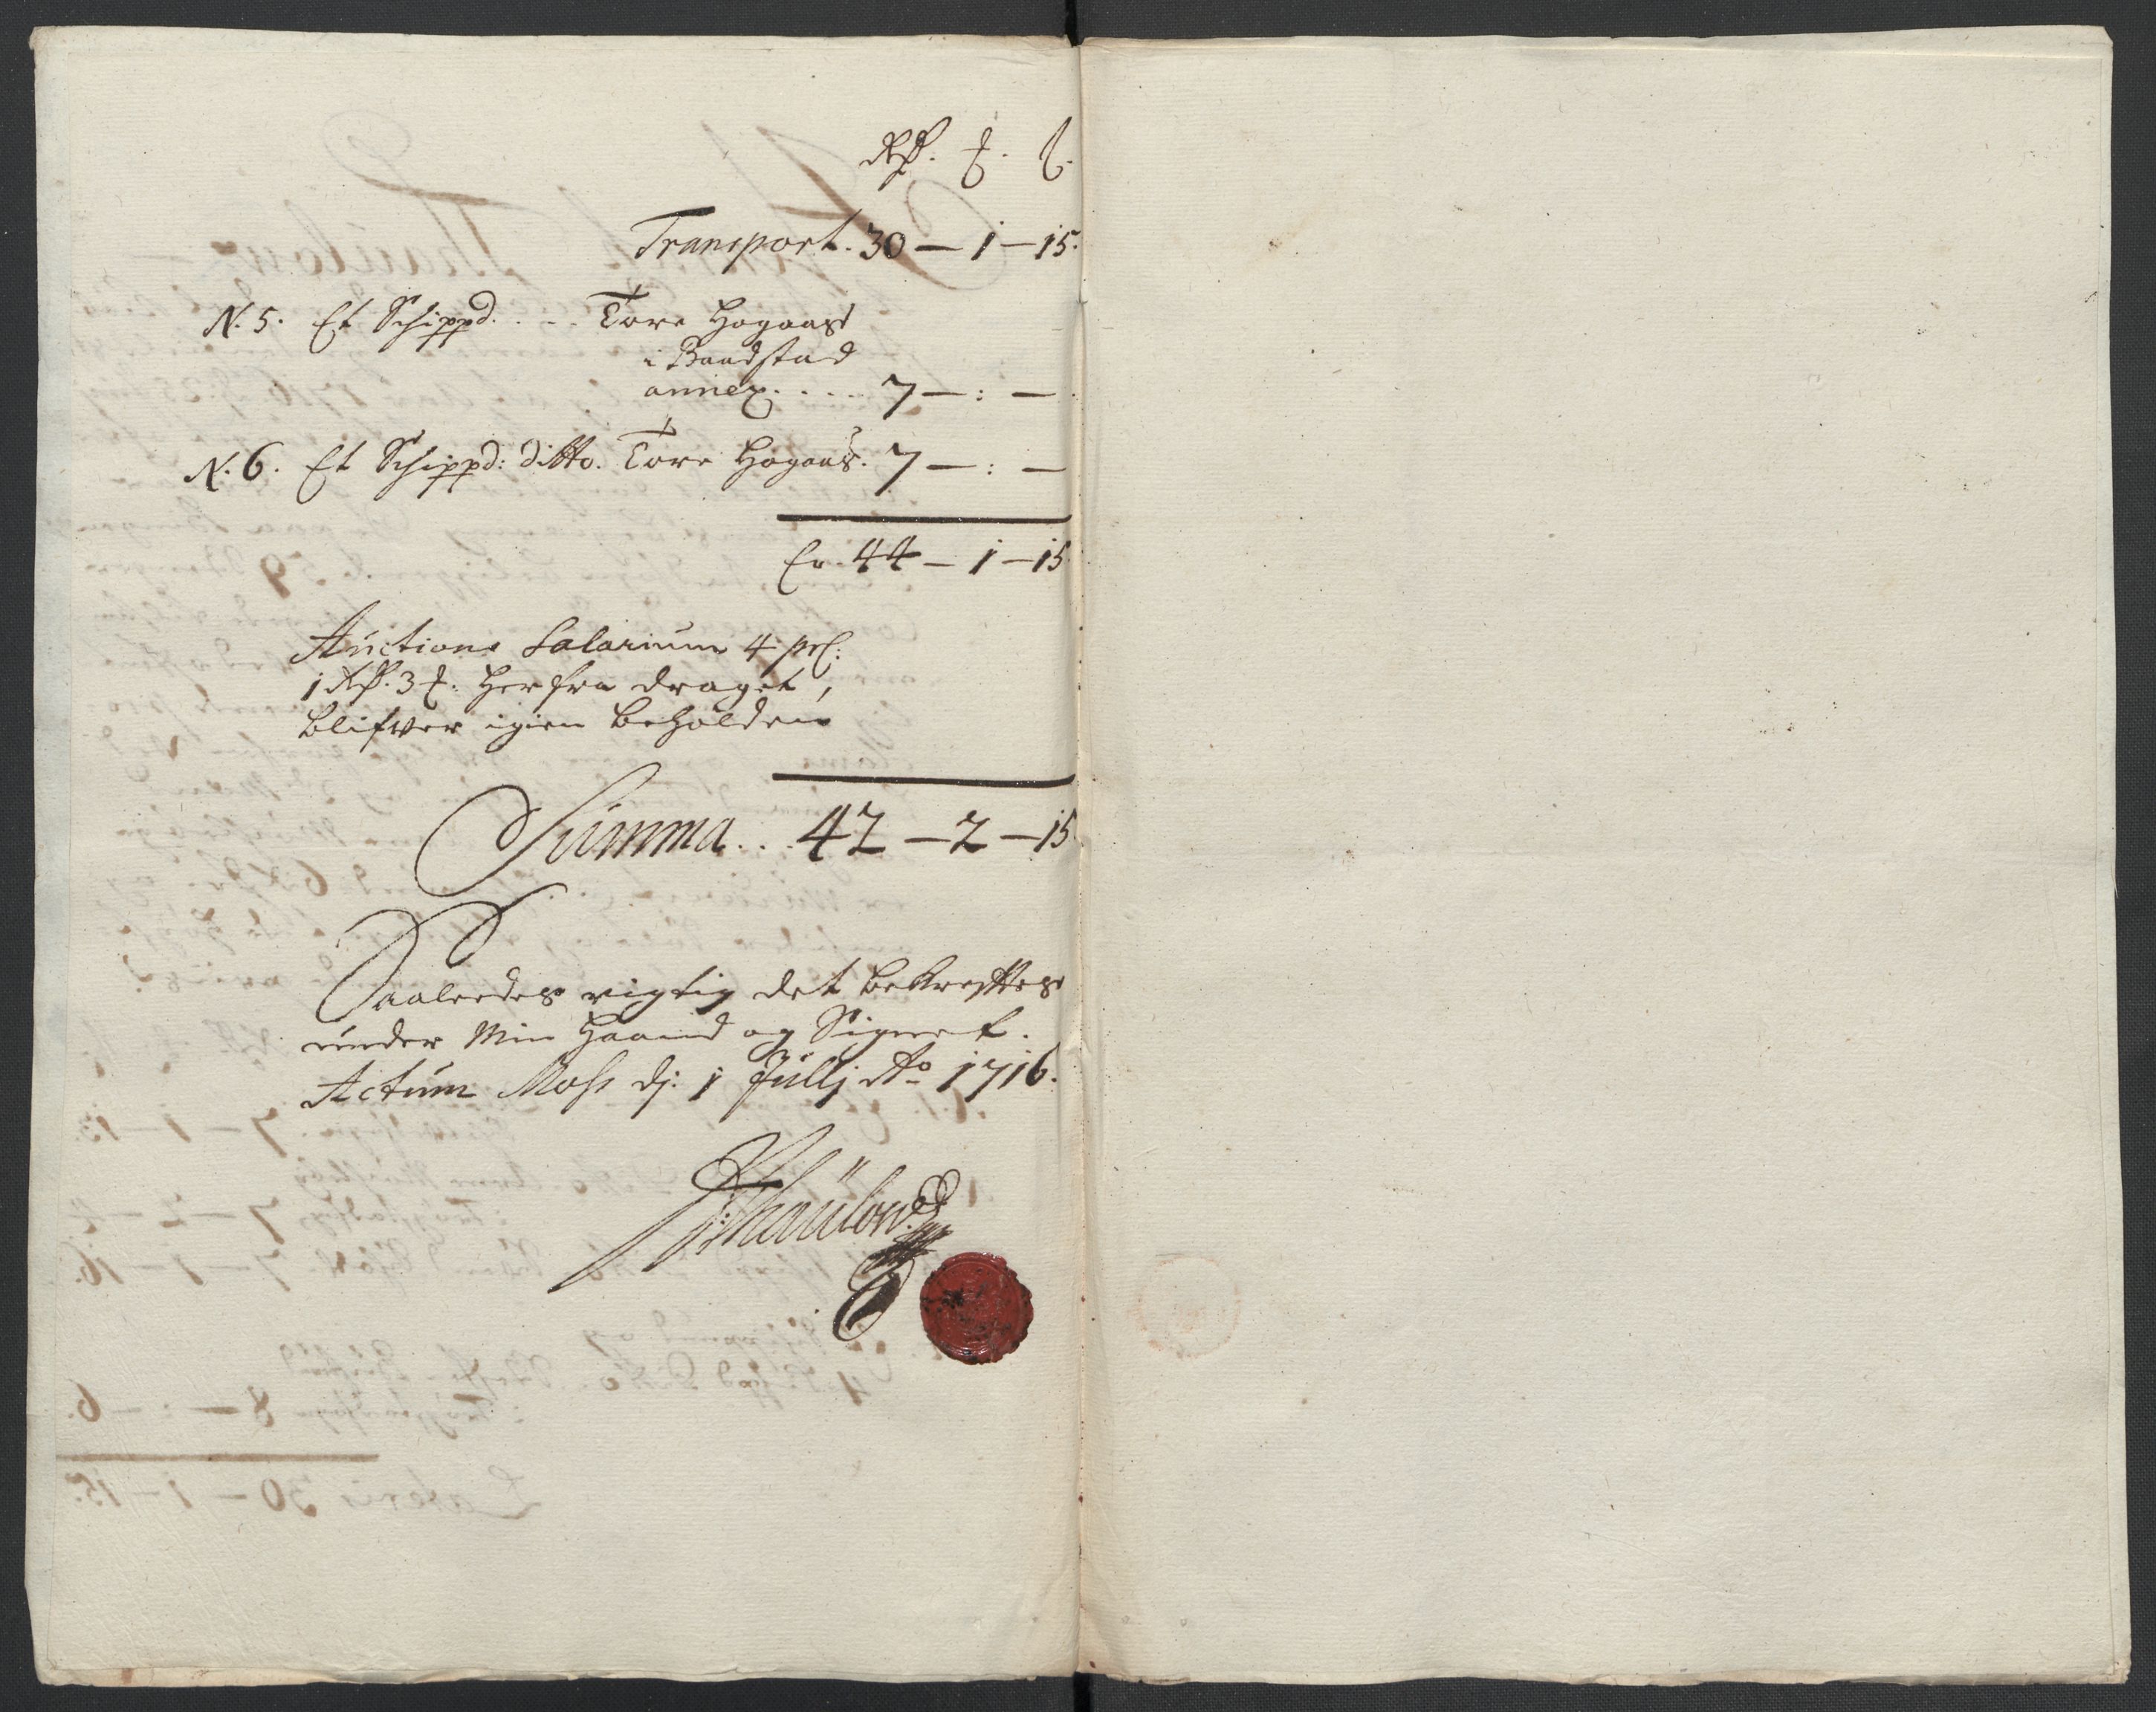 Rd. ₰. ß.
Transport. 30 — 1 — 15.
N. 5. Et Schippd. . - - Tore Hogaas
i Baadstad
annex. . . . . 7 — : — .
N. 6. Et Schippd: ditto. Tore Hogaas. 7 — : —
Er. 44 — 1 — 15
Auctions Salarium 4 pC:
1 Rd. 3 ₰. Her fra draget,
blifver igien beholden
Summa. . . 42 — 2 — 15
Saaledes rigtig det bekreftes
under Min Haand og Signet.
Actum Moss dj. 1 Julj Ao 1716.
Thaulow